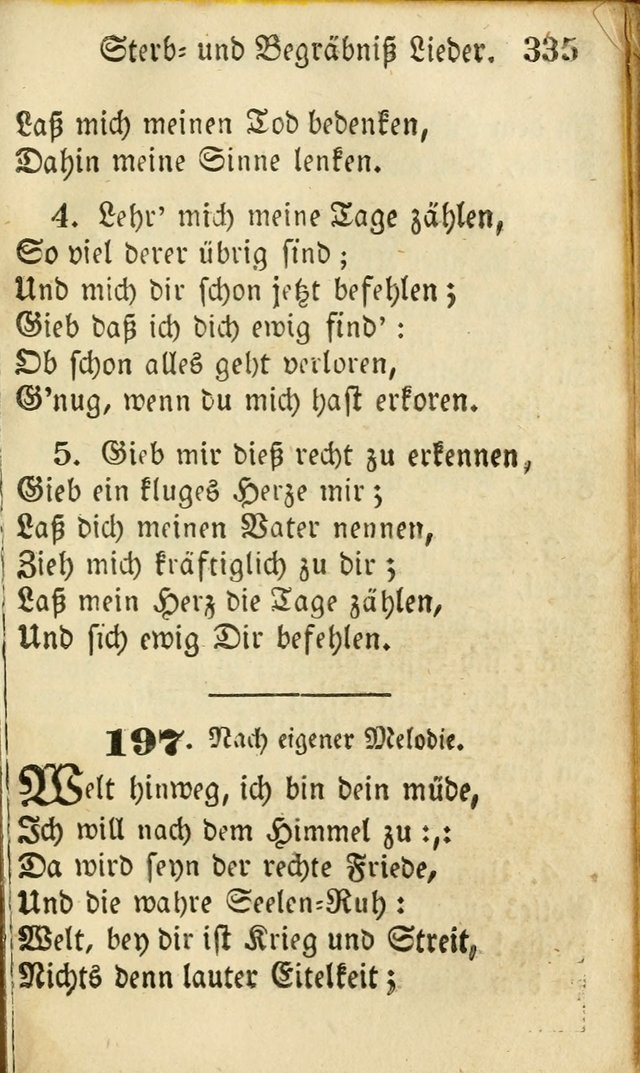 Sterb- und Begräbniß Lieder. 335
Laß mich meinen Tod bedenken,
Dahin meine Sinne lenken.
4. Lehr' mich meine Tage zählen,
So viel derer übrig sind;
Und mich dir schon jetzt befehlen;
Gieb daß ich dich ewig find':
Ob schon alles geht verloren,
G'nug, wenn du mich hast erkoren.
5. Gieb mir dieß recht zu erkennen,
Gieb ein kluges Herze mir;
Laß dich meinen Vater nennen,
Zieh mich kräftiglich zu dir;
Laß mein Herz die Tage zählen,
Und sich ewig Dir befehlen.
197. Nach eigener Melodie.
Welt hinweg, ich bin dein müde,
Ich will nach dem Himmel zu :,:
Da wird seyn der rechte Friede,
Und die wahre Seelen-Ruh:
Welt, bey dir ist Krieg und Streit,
Nichts denn lauter Eitelkeit;